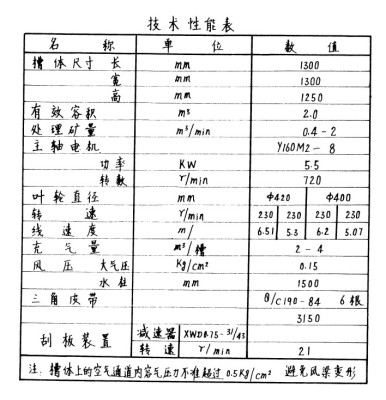 技术性能表
名 称 单 位 数 值
槽体尺寸 长 mm 1300
宽 mm 1300
高 mm 1250
有效容积 m³ 2.0
处理矿量 m³/min 0.4-2
主轴电机 Y160M2-8
功率 KW 5.5
转数 r/min 720
叶轮直径 mm Φ420 Φ400
转 速 r/min 230 230 230 230
线速度 m/ 6.51 5.3 6.2 5.07
充气量 m³/槽 2-4
风压 大气压 Kg/cm² 0.15
水柱 mm 1500
三角皮带 B/C190-84 6根
3150
刮板装置 减速器 XWDR75-31/43
转速 r/min 21
注：槽体上的空气通道内容气压力不准超过0.5Kg/cm² 避免风梁变形